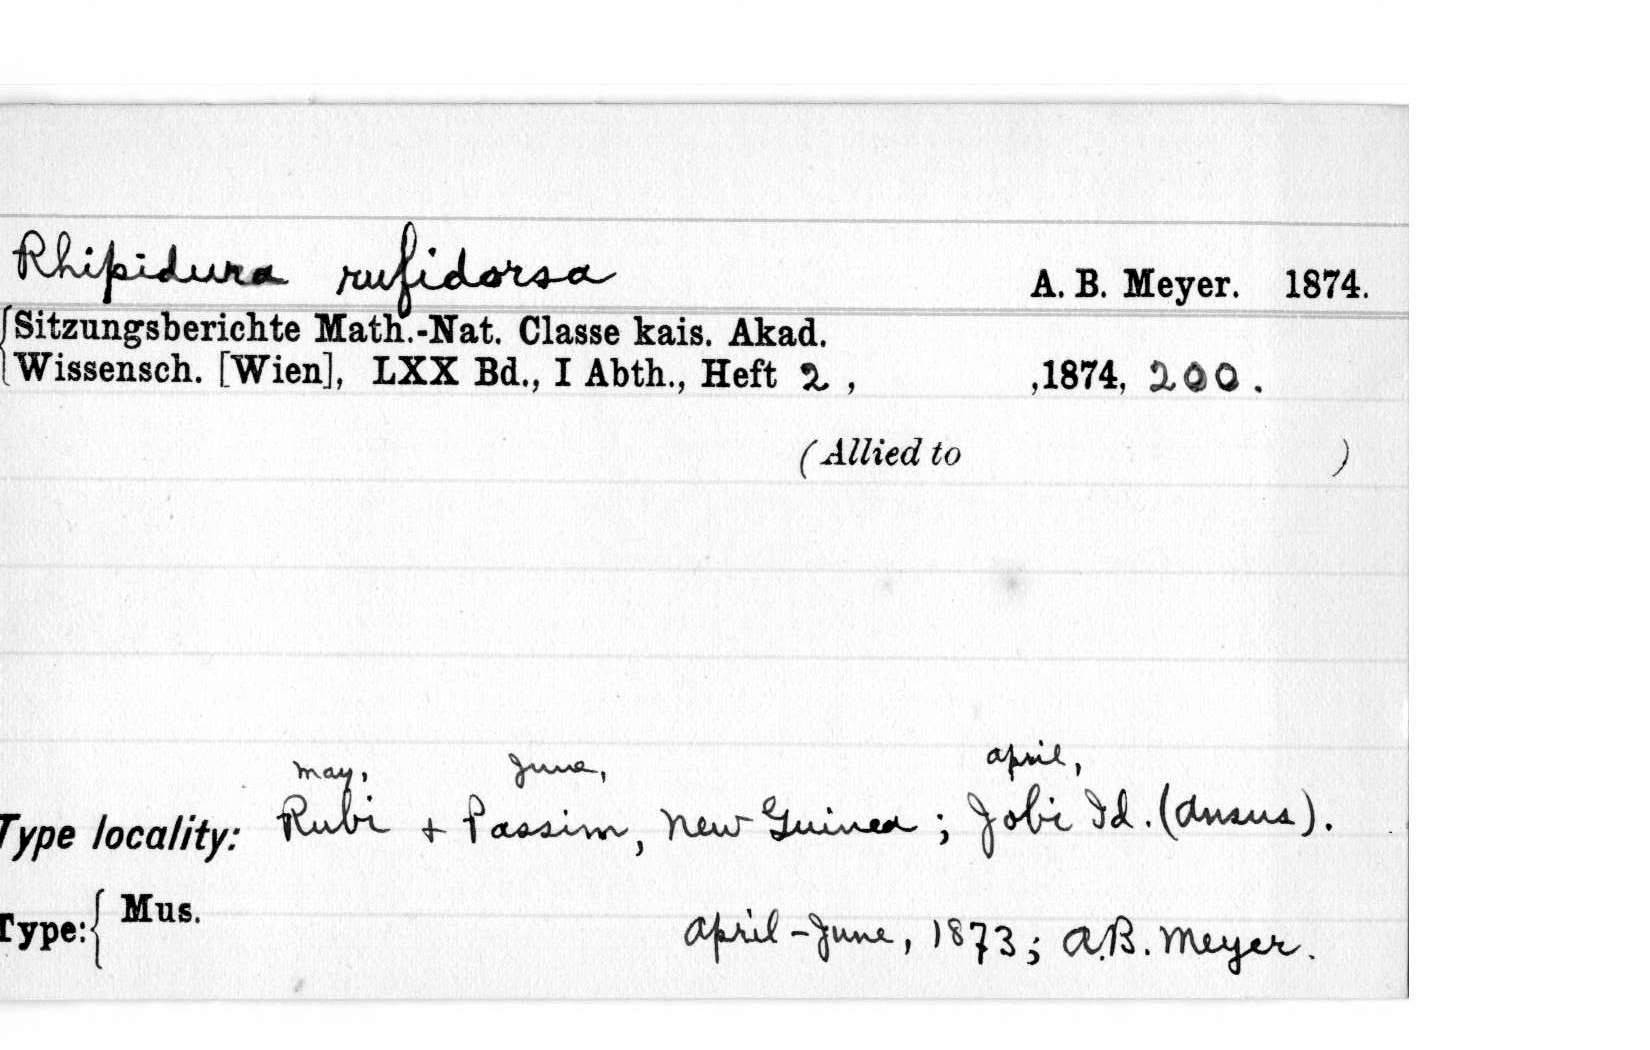 Rhipidura rufidorsa A. B. Meyer. 1874.
Sitzungsberichte Math.-Nat. Classe kais. Akad.
Wissensch. [Wien], LXX Bd., I Abth., Heft 2 , ,1874, 200.
(Allied to )
may, June, april,
Type locality: Rubi + Passim, New Guinea ; Jobi Id. (Ansus).
Type: Mus.
April-June, 1873; A.B. Meyer.